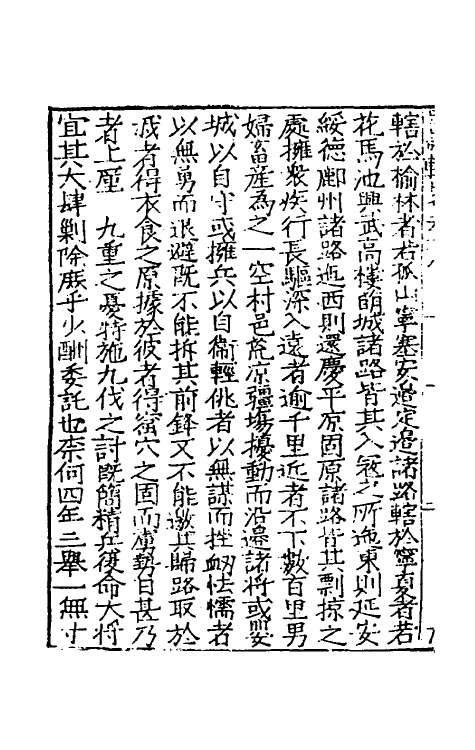 轄於榆林者若孤山寧塞安邉定邉諸路轄於寧夏者若
花馬池興武高樓萌城諸路皆其入冦之所迤東則延安
綏德鄜州諸路迤西則還慶平凉固原諸路皆其剽掠之
處擁衆疾行長驅深入遠者逾千里近者不下數百里男
婦畜産為之一空村邑荒凉疆場擾動而沿邉諸將或嬰
城以自守或擁兵以自衞輕佻者以無謀而挫衂怯懦者
以無勇而退避既不能拆其前鋒又不能邀其歸路取於
我者得衣食之原據於彼者得窟穴之固而虜勢日甚乃
者上厪　九重之憂特施九伐之討既簡精兵復命大將
宜其大肆剿除庶乎少酬委託也柰何四年三舉一無寸